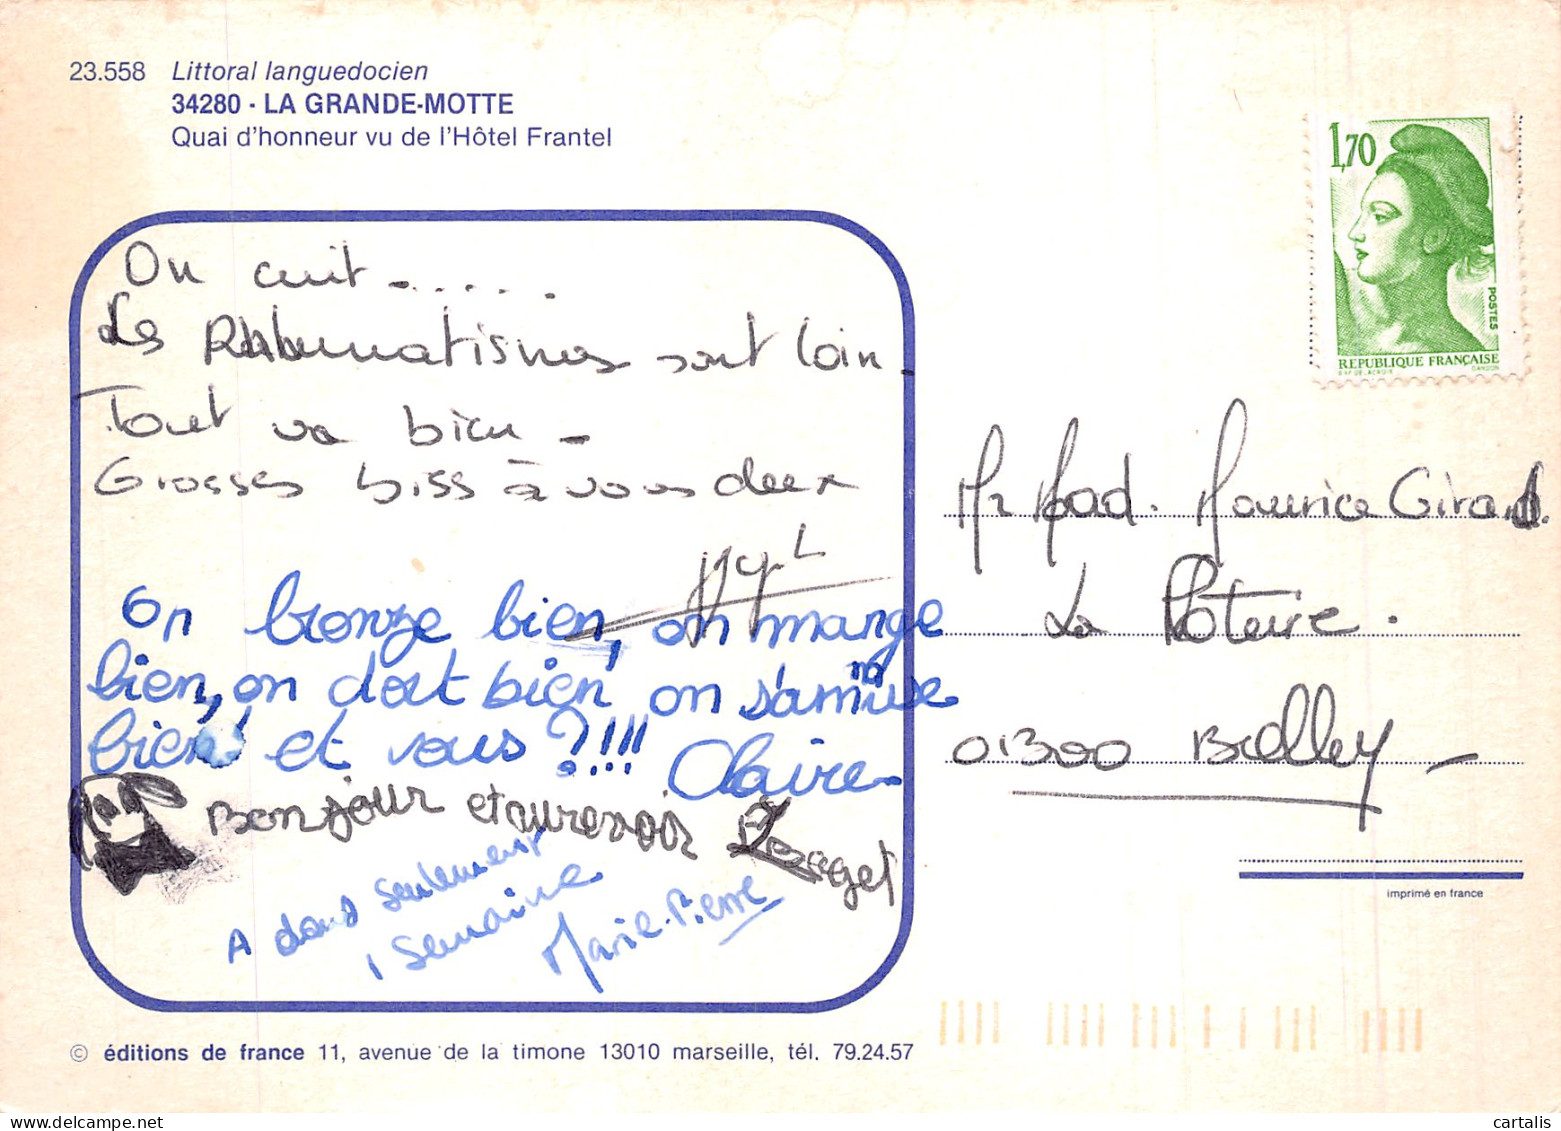 23.558 Littoral languedocien
34280 - LA GRANDE-MOTTE
Quai d'honneur vu de l'Hôtel Frantel
1,70
POSTES
RÉPUBLIQUE FRANÇAISE
On cuit ......
Les Rhumatismes sont loin.
Tout va bien -
Grosses biss à vous deux
On bronze bien, on mange
bien, on dort bien on s'amuse
bien et vous ?!!! Claire
Bonjour et aurevoir
A dans seulement
1 semaine
Marie-Pierre
Mr Mad. Maurice Girard.
La
01300 Belley -
imprimé en france
© éditions de france 11, avenue de la timone 13010 marseille, tél. 79.24.57
cartalis